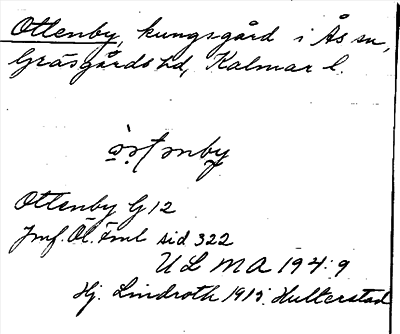 Ottenby, kungsgård i Ås sn,
Gräsgårds hd, Kalmar l.
Ottenby G 12
Jmf. Öl. Fml sid 322
ULMA 194:9
Hj. Lindroth 1915. Hulterstad